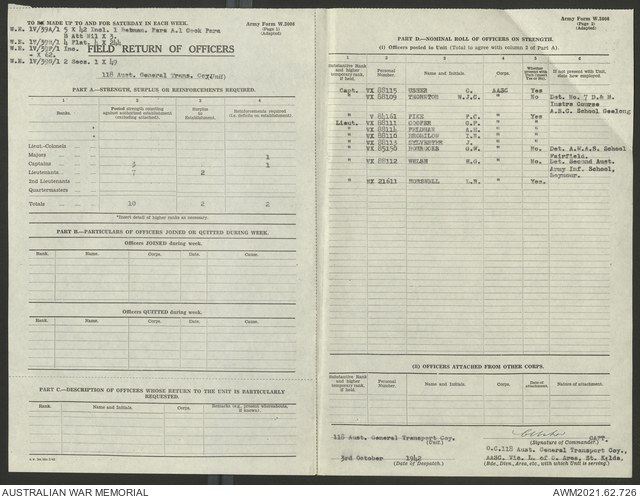 TO BE MADE UP TO AND FOR SATURDAY IN EACH WEEK.
Army Form W.3008
(Page 2)
(Adapted)
W.E. 1V/39A/1 5 X 42 Incl. 1 Batman. Para A.1 Cook Para
B Att Nil X 3.
W.E. 1V/39H/1 4 Plat. 4 X 244
W.E. 1V/39F/1 Ins.
X 62.
W.E. 1V/39B/1 2 Secs. 1 X 49
FIELD RETURN OF OFFICERS
118 Aust. General Trans. Coy. (Unit)
PART A.—STRENGTH, SURPLUS OR REINFORCEMENTS REQUIRED.
1 2 3 4
Ranks. Posted strength counting against authorised establishment (excluding attached). Surplus to Establishment. Reinforcements required (i.e. deficits on establishment).
*
*
Lieut.-Colonels
Majors 1
Captains 3 1
Lieutenants 7 2
2nd Lieutenants
Quartermasters
Totals 10 2 2
*Insert detail of higher ranks as necessary.
PART B.—PARTICULARS OF OFFICERS JOINED OR QUITTED DURING WEEK.
Officers JOINED during week.
Rank. Name. Corps. Date. Cause.
Officers QUITTED during week.
Rank. Name. Corps. Date. Cause.
PART C.—DESCRIPTION OF OFFICERS WHOSE RETURN TO THE UNIT IS PARTICULARLY
REQUESTED.
Rank. Name and Initials. Corps. Remarks (e.g., present whereabouts, if known).
Army Form W.3008
(Page 3)
(Adapted)
PART D.—NOMINAL ROLL OF OFFICERS ON STRENGTH.
(i) Officers posted to Unit (Total to agree with column 2 of Part A).
1 2 3 4 5 6
Substantive Rank and higher temporary rank, if held. Personal Number. Name and Initials. Corps. Whether present with Unit (insert Yes or No). If not present with Unit, state how employed.
Capt. VX 88115 G. AASC Yes
" VX 88109 THORNTON W.J.C. " No Det. No. 7 D. & M.
Instrs Course
A.S.C. School Geelong
" V 61161 F.C. " Yes
Lieut. VX 88111 COOPER G.F. " "
" VX 88114 FELDMAN A.H. " "
" VX 88116 I.H. " "
" VX 88113 SYLVESTER J. " "
" VX 85190 G.W. " No. Det. A.W.A.S. School
Fairfield.
" VX 88112 WELSH W.G. " No. Det. Second Aust.
Army Inf. School,
Seymour.
" WX 21611 L.R. " Yes.
(ii) OFFICERS ATTACHED FROM OTHER CORPS.
Substantive Rank and higher temporary rank, if held. Personal Number. Name and Initials. Corps. Date of attachment. Nature of attachment.
118 Aust. General Transport Coy.
(Unit).
3rd October 1942
(Date of Despatch).
CAPT.
(Signature of Commander).
O.C. 118 Aust. General Transport Coy.,
AASC. Vic. L. of C. Area, St. Kilda.
(Bde., Divn., Area, etc., with which Unit is serving).
AUSTRALIAN WAR MEMORIAL
AWM2021.62.726